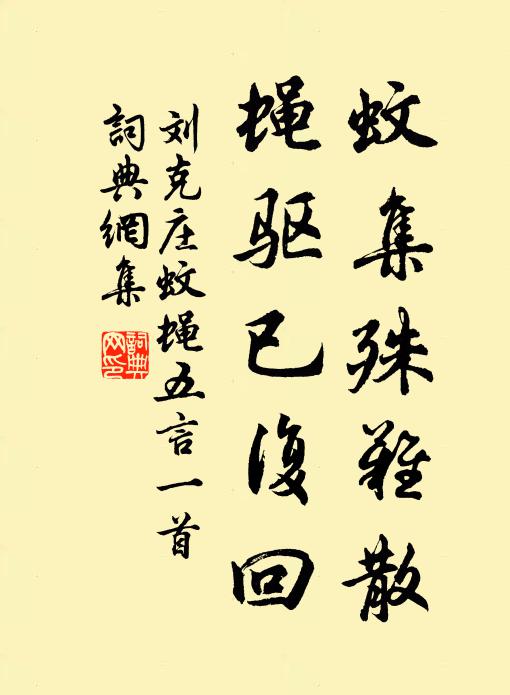 蚊集殊難散
蝇驱已復回
刘克庄蚊蝇五言一首
詞典網集
詞典网印